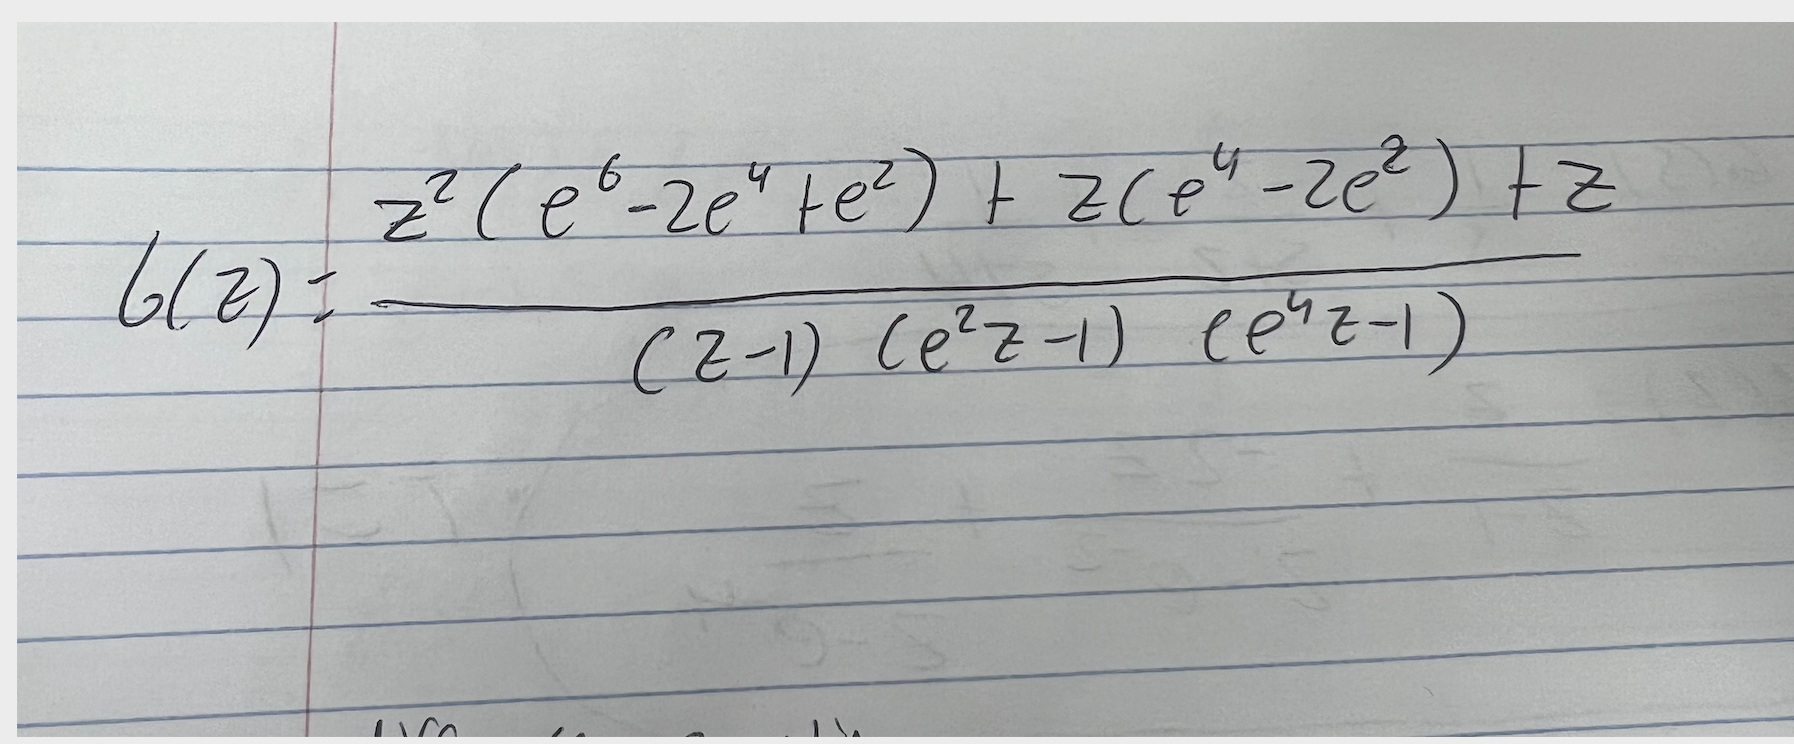 G(z) = (z²(e⁶ - 2e⁴ + e²) + z(e⁴ - 2e²) + z) / ((z-1) (e²z-1) (e⁴z-1))